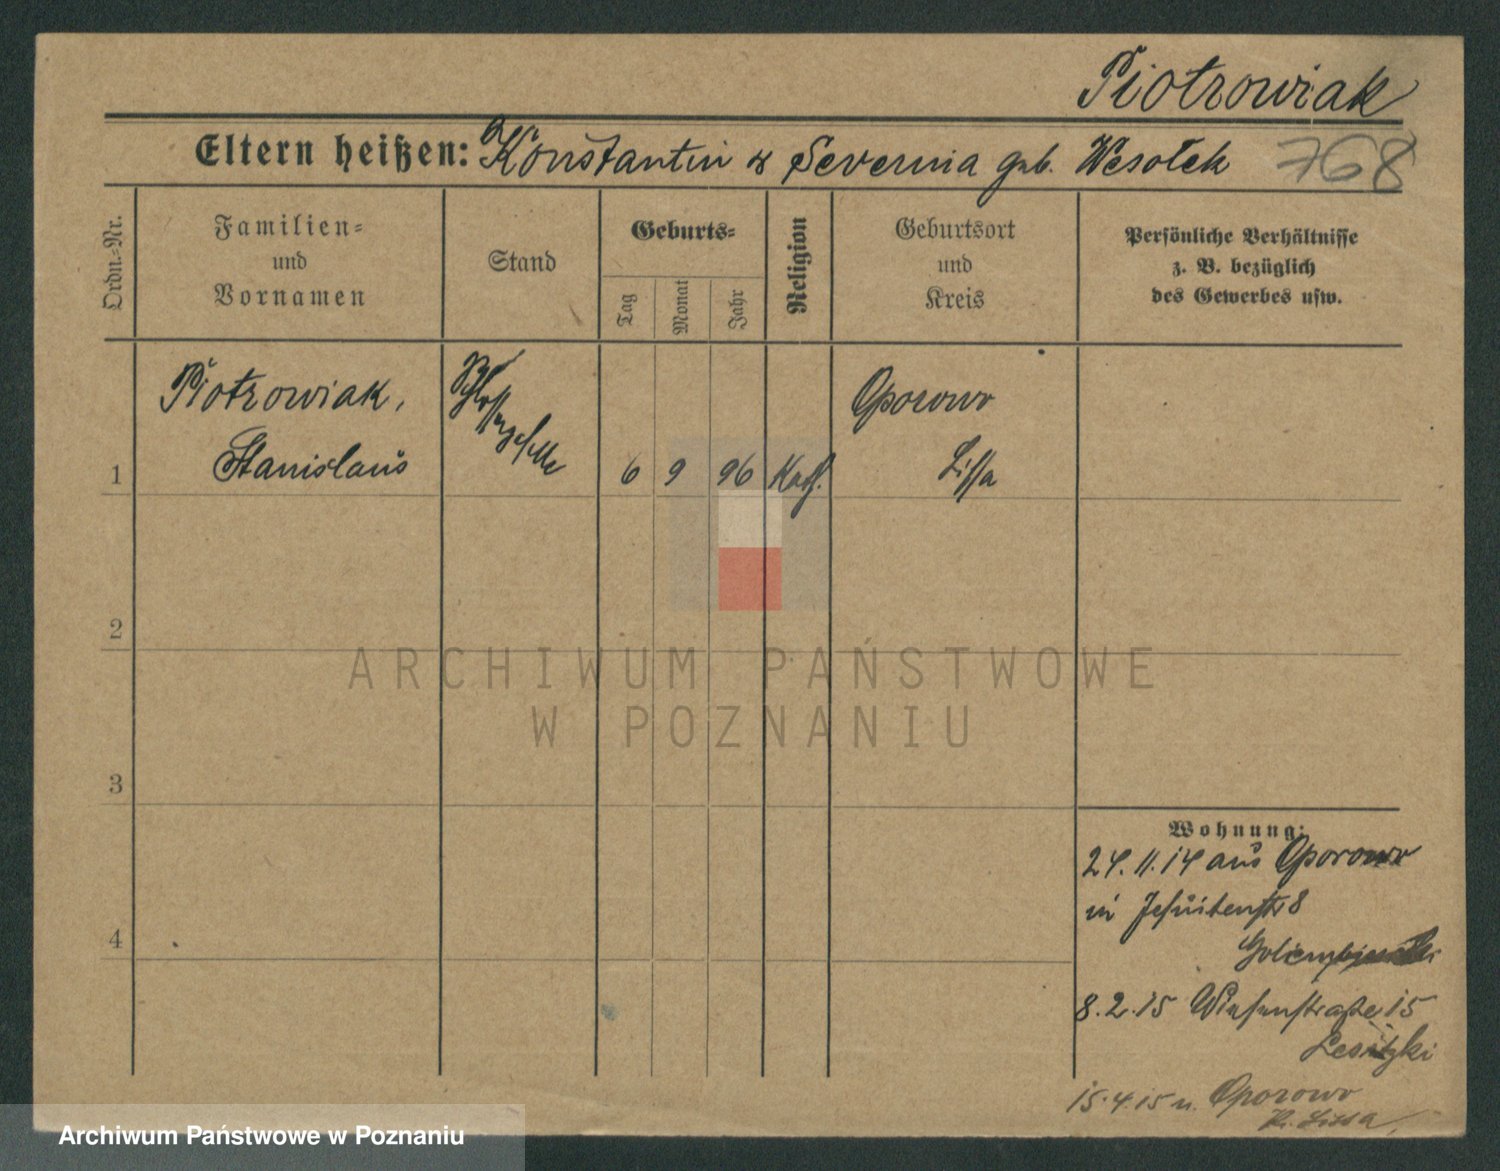 Piotrowiak
Eltern heißen: Konstantin & Severina geb. Wesołek 768
Ordn.-Nr.
Familien-
und
Vornamen
Stand
Geburts-
Tag
Monat
Jahr
Religion
Geburtsort
und
Kreis
Persönliche Verhältnisse
z. B. bezüglich
des Gewerbes usw.
1
Piotrowiak,
Stanislaus
Schlossergeselle
6 9 96 Kath.
Oporowo
Lissa
2
3
4
Wohnung:
24.11.14 aus Oporowo
in Jesuitenstr 8
8.2.15 Wiesenstraße 15
Lesitzki
15.4.15 n. Oporowo
K. Lissa
ARCHIWUM PAŃSTWOWE
W POZNANIU
Archiwum Państwowe w Poznaniu